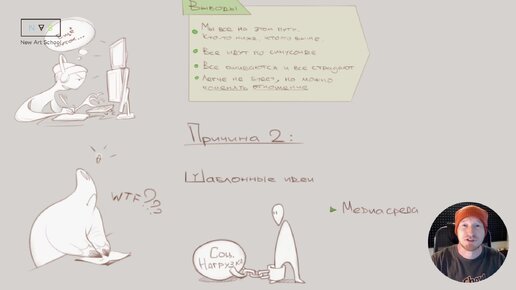 NVS
New Art School
Выводы
Мы все на этом пути.
Кто-то ниже, кто-то выше.
Все идут по синусоиде
Все ошибаются и все страдают
Легче не будет, но можно
поменять отношение
Причина 2:
Шаблонные идеи
WTF???
Медиасреда
Соц.
Нагрузка